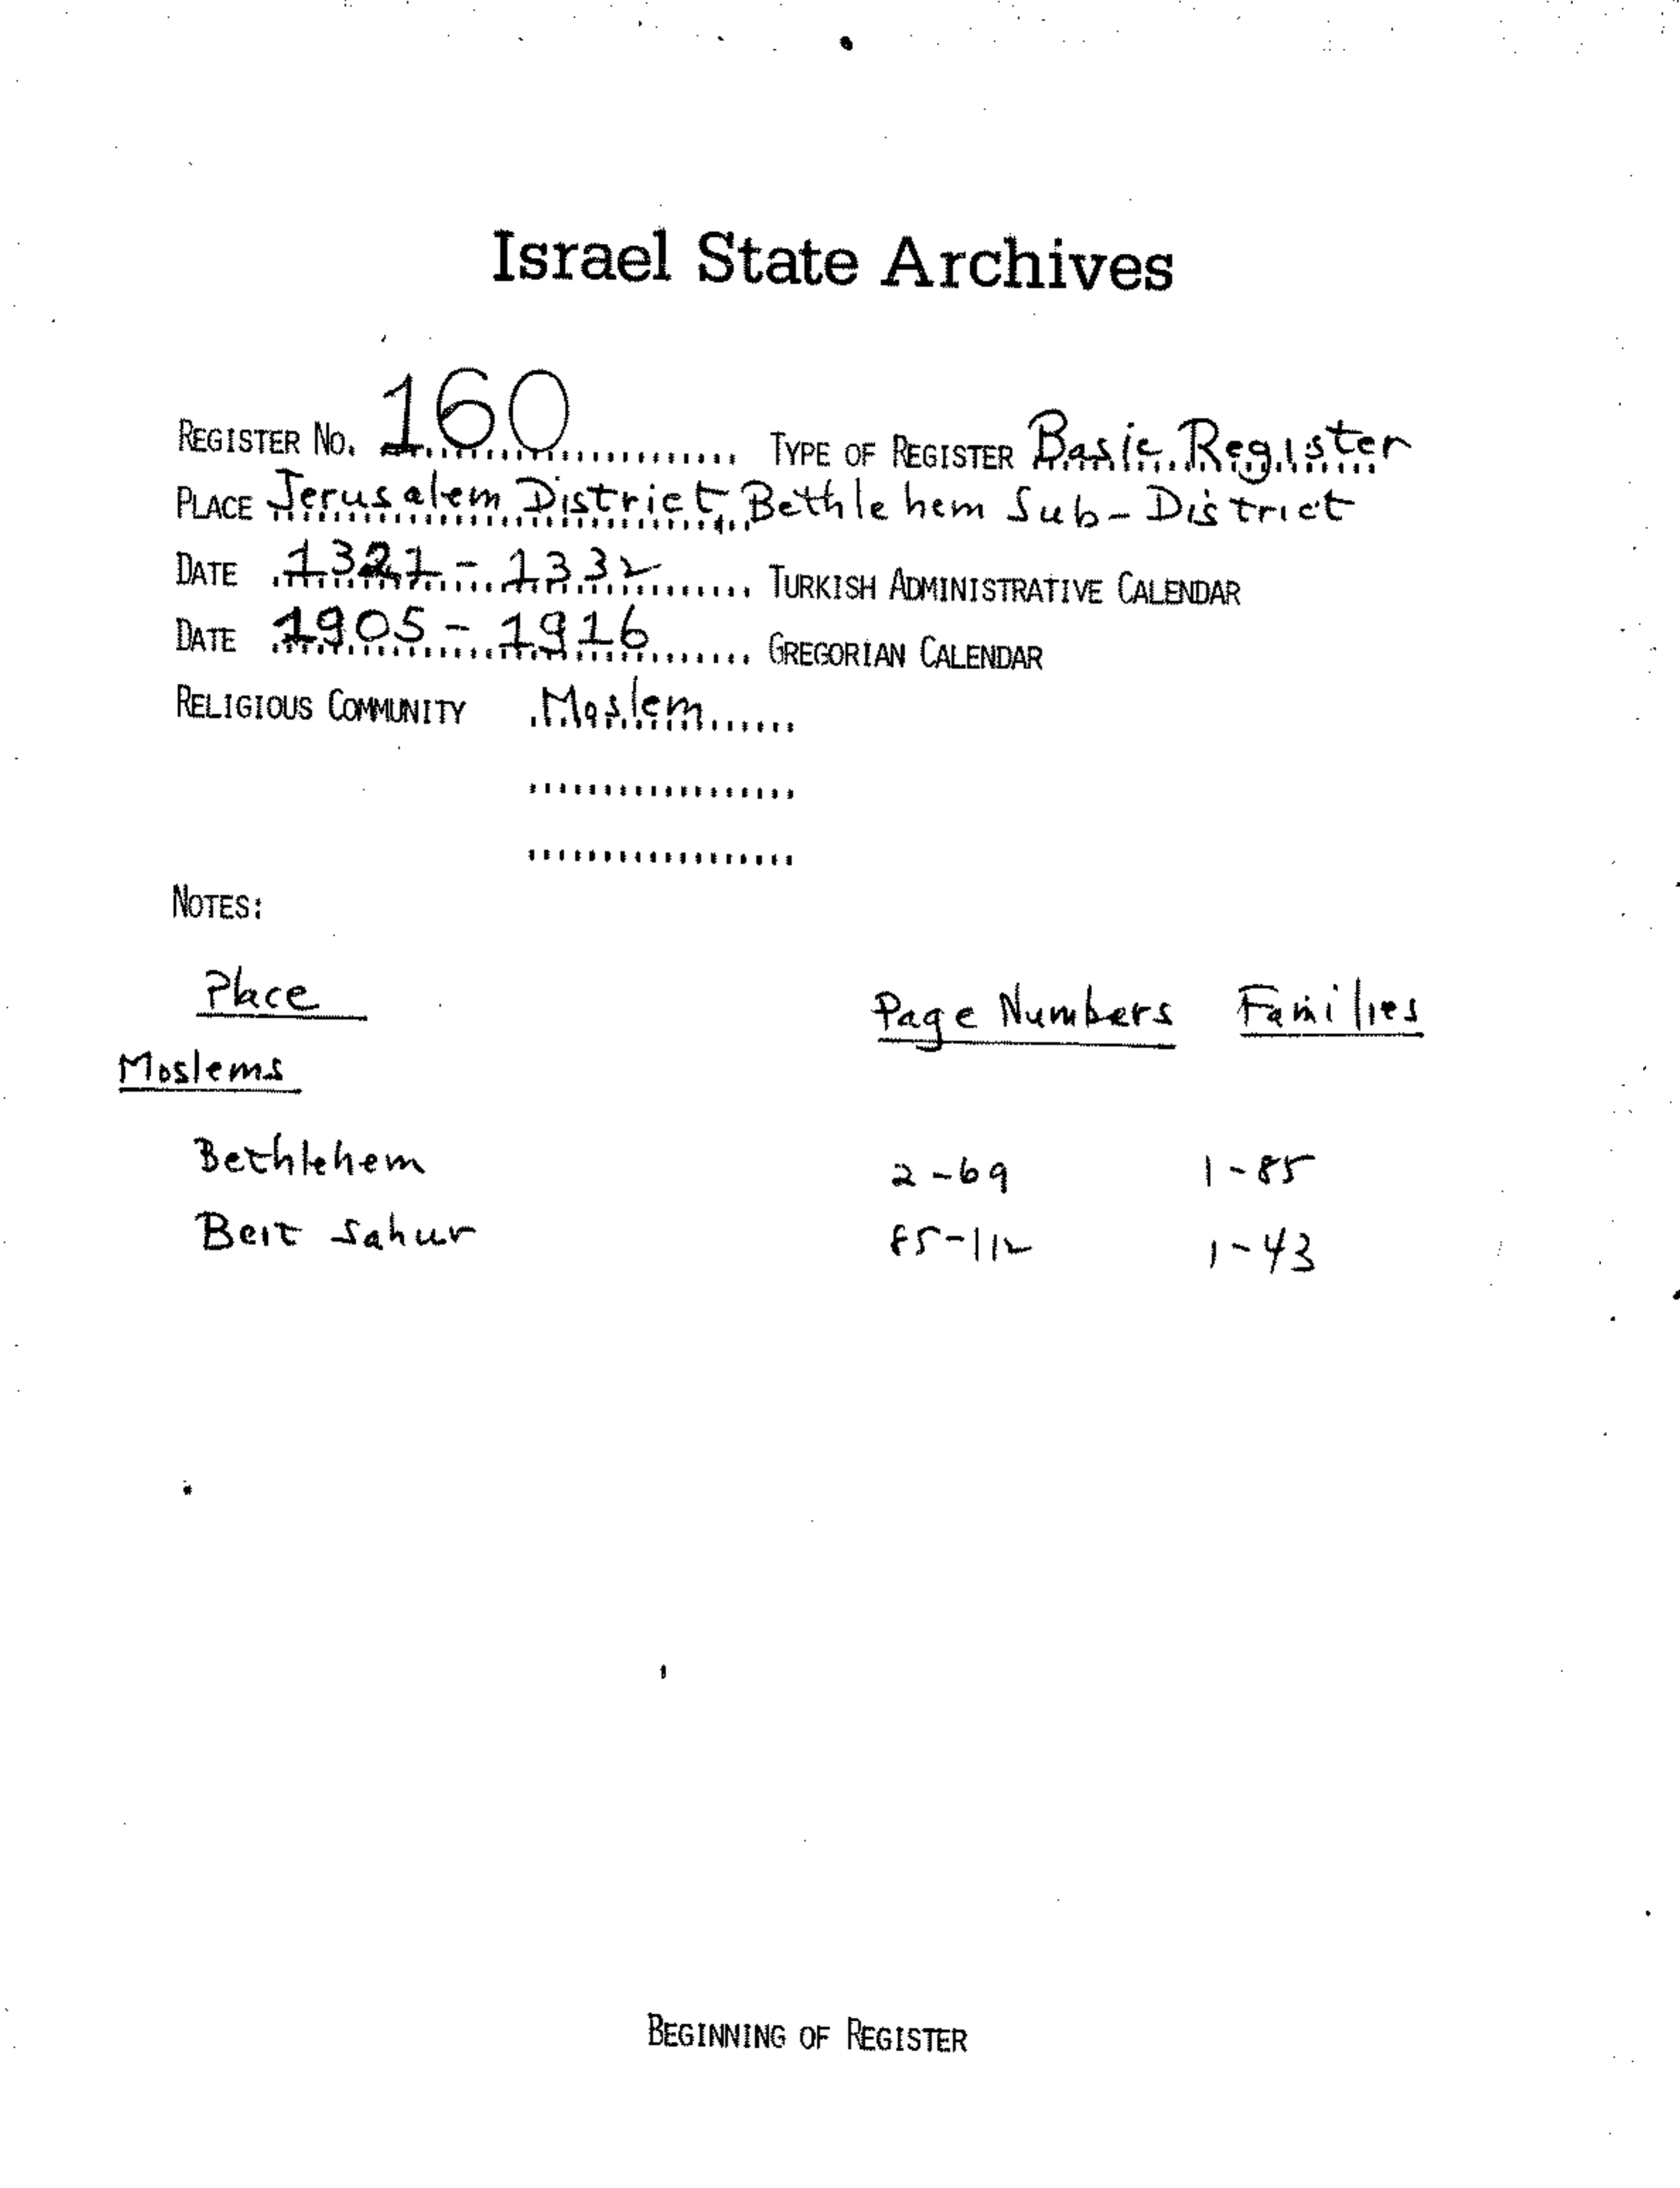 Israel State Archives
REGISTER NO. 160 TYPE OF REGISTER Basic Register
PLACE Jerusalem District, Bethlehem Sub-District
DATE 1321 - 1332 TURKISH ADMINISTRATIVE CALENDAR
DATE 1905 - 1916 GREGORIAN CALENDAR
RELIGIOUS COMMUNITY Moslem
NOTES:
Place Page Numbers Families
Moslems
Bethlehem 2-69 1-85
Beit Sahur 85-112 1-43
BEGINNING OF REGISTER